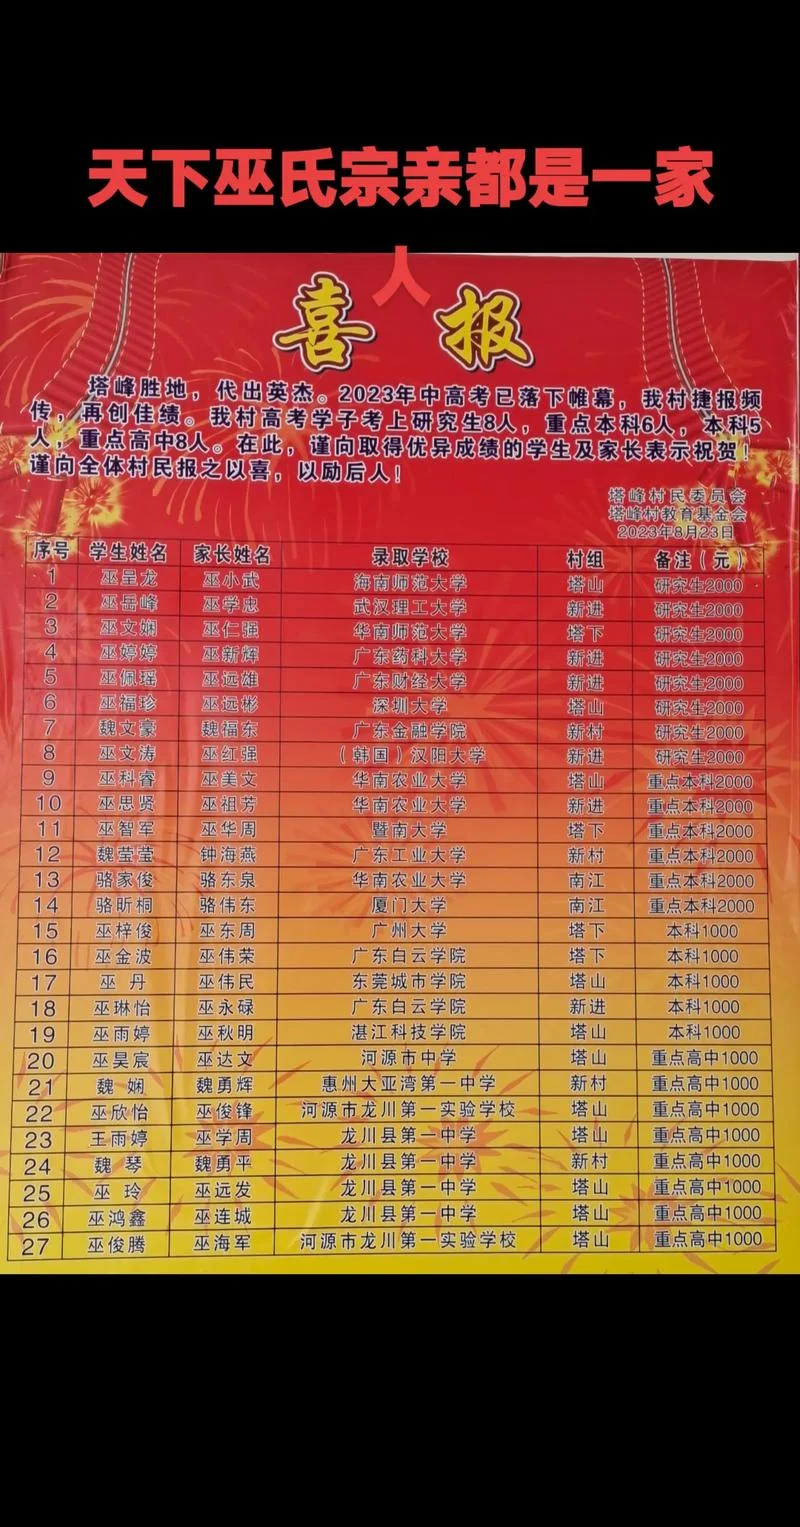 天下巫氏宗亲都是一家
人
喜报
塔峰胜地，代出英杰。2023年中高考已落下帷幕，我村捷报频
传，再创佳绩。我村高考学子考上研究生8人，重点本科6人，本科5
人，重点高中8人。在此，谨向取得优异成绩的学生及家长表示祝贺！
谨向全体村民报之以喜，以励后人！
塔峰村民委员会
塔峰村教育基金会
2023年8月23日
序号 学生姓名 家长姓名 录取学校 村组 备注（元）
1 巫呈龙 巫小武 海南师范大学 塔山 研究生2000
2 巫岳峰 巫学忠 武汉理工大学 新进 研究生2000
3 巫文娴 巫仁强 华南师范大学 塔下 研究生2000
4 巫婷婷 巫新辉 广东药科大学 新进 研究生2000
5 巫佩瑶 巫远雄 广东财经大学 新进 研究生2000
6 巫福珍 巫远彬 深圳大学 塔山 研究生2000
7 魏文豪 魏福东 广东金融学院 新村 研究生2000
8 巫文涛 巫红强 （韩国）汉阳大学 新进 研究生2000
9 巫科睿 巫美文 华南农业大学 塔山 重点本科2000
10 巫思贤 巫祖芳 华南农业大学 新进 重点本科2000
11 巫智军 巫华周 暨南大学 塔下 重点本科2000
12 魏莹莹 钟海燕 广东工业大学 新村 重点本科2000
13 骆家俊 骆东泉 华南农业大学 南江 重点本科2000
14 骆昕桐 骆伟东 厦门大学 南江 重点本科2000
15 巫梓俊 巫东周 广州大学 塔下 本科1000
16 巫金波 巫伟荣 广东白云学院 塔下 本科1000
17 巫丹 巫伟民 东莞城市学院 塔山 本科1000
18 巫琳怡 巫永碌 广东白云学院 新进 本科1000
19 巫雨婷 巫秋明 湛江科技学院 塔山 本科1000
20 巫昊宸 巫达文 河源市中学 塔山 重点高中1000
21 魏娴 魏勇辉 惠州大亚湾第一中学 新村 重点高中1000
22 巫欣怡 巫俊锋 河源市龙川第一实验学校 塔山 重点高中1000
23 王雨婷 巫学周 龙川县第一中学 塔山 重点高中1000
24 魏琴 魏勇平 龙川县第一中学 新村 重点高中1000
25 巫玲 巫远发 龙川县第一中学 塔山 重点高中1000
26 巫鸿鑫 巫连城 龙川县第一中学 塔山 重点高中1000
27 巫俊腾 巫海军 河源市龙川第一实验学校 塔山 重点高中1000